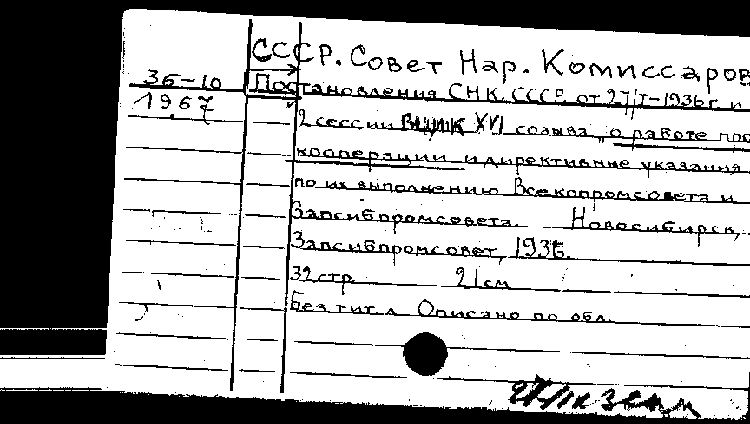 СССР. Совет Нар. Комиссаров
36-10
1967
Постановления СНК СССР от 27/I-1936 г. и
2 сессии ВЦИК XVI созыва „о работе про
кооперации и директивные указания
по их выполнению Всекопромсовета и
Запсибпромсовета. Новосибирск,
Запсибпромсовет, 1936.
32 стр. 21 см
Без тит. л. Описано по обл.